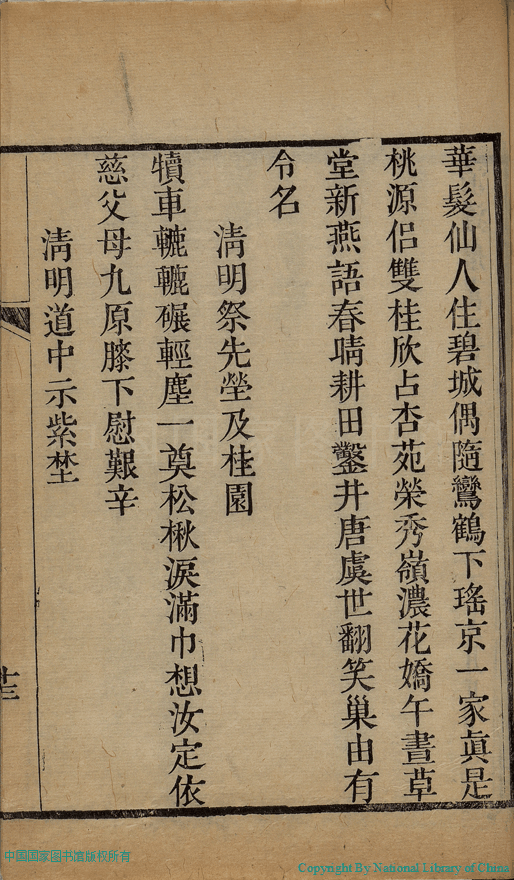 華髮仙人住碧城偶隨鸞鶴下瑤京一家眞是
桃源侶雙桂欣占杏苑榮秀嶺濃花嬌午晝草
堂新燕語春晴耕田鑿井唐虞世翻笑巢由有
令名
淸明祭先塋及桂園
犢車轆轆碾輕塵一奠松楸淚滿巾想汝定依
慈父母九原膝下慰艱辛
淸明道中示紫埜
十三
中国国家图书馆版权所有
Copyright By National Library of China